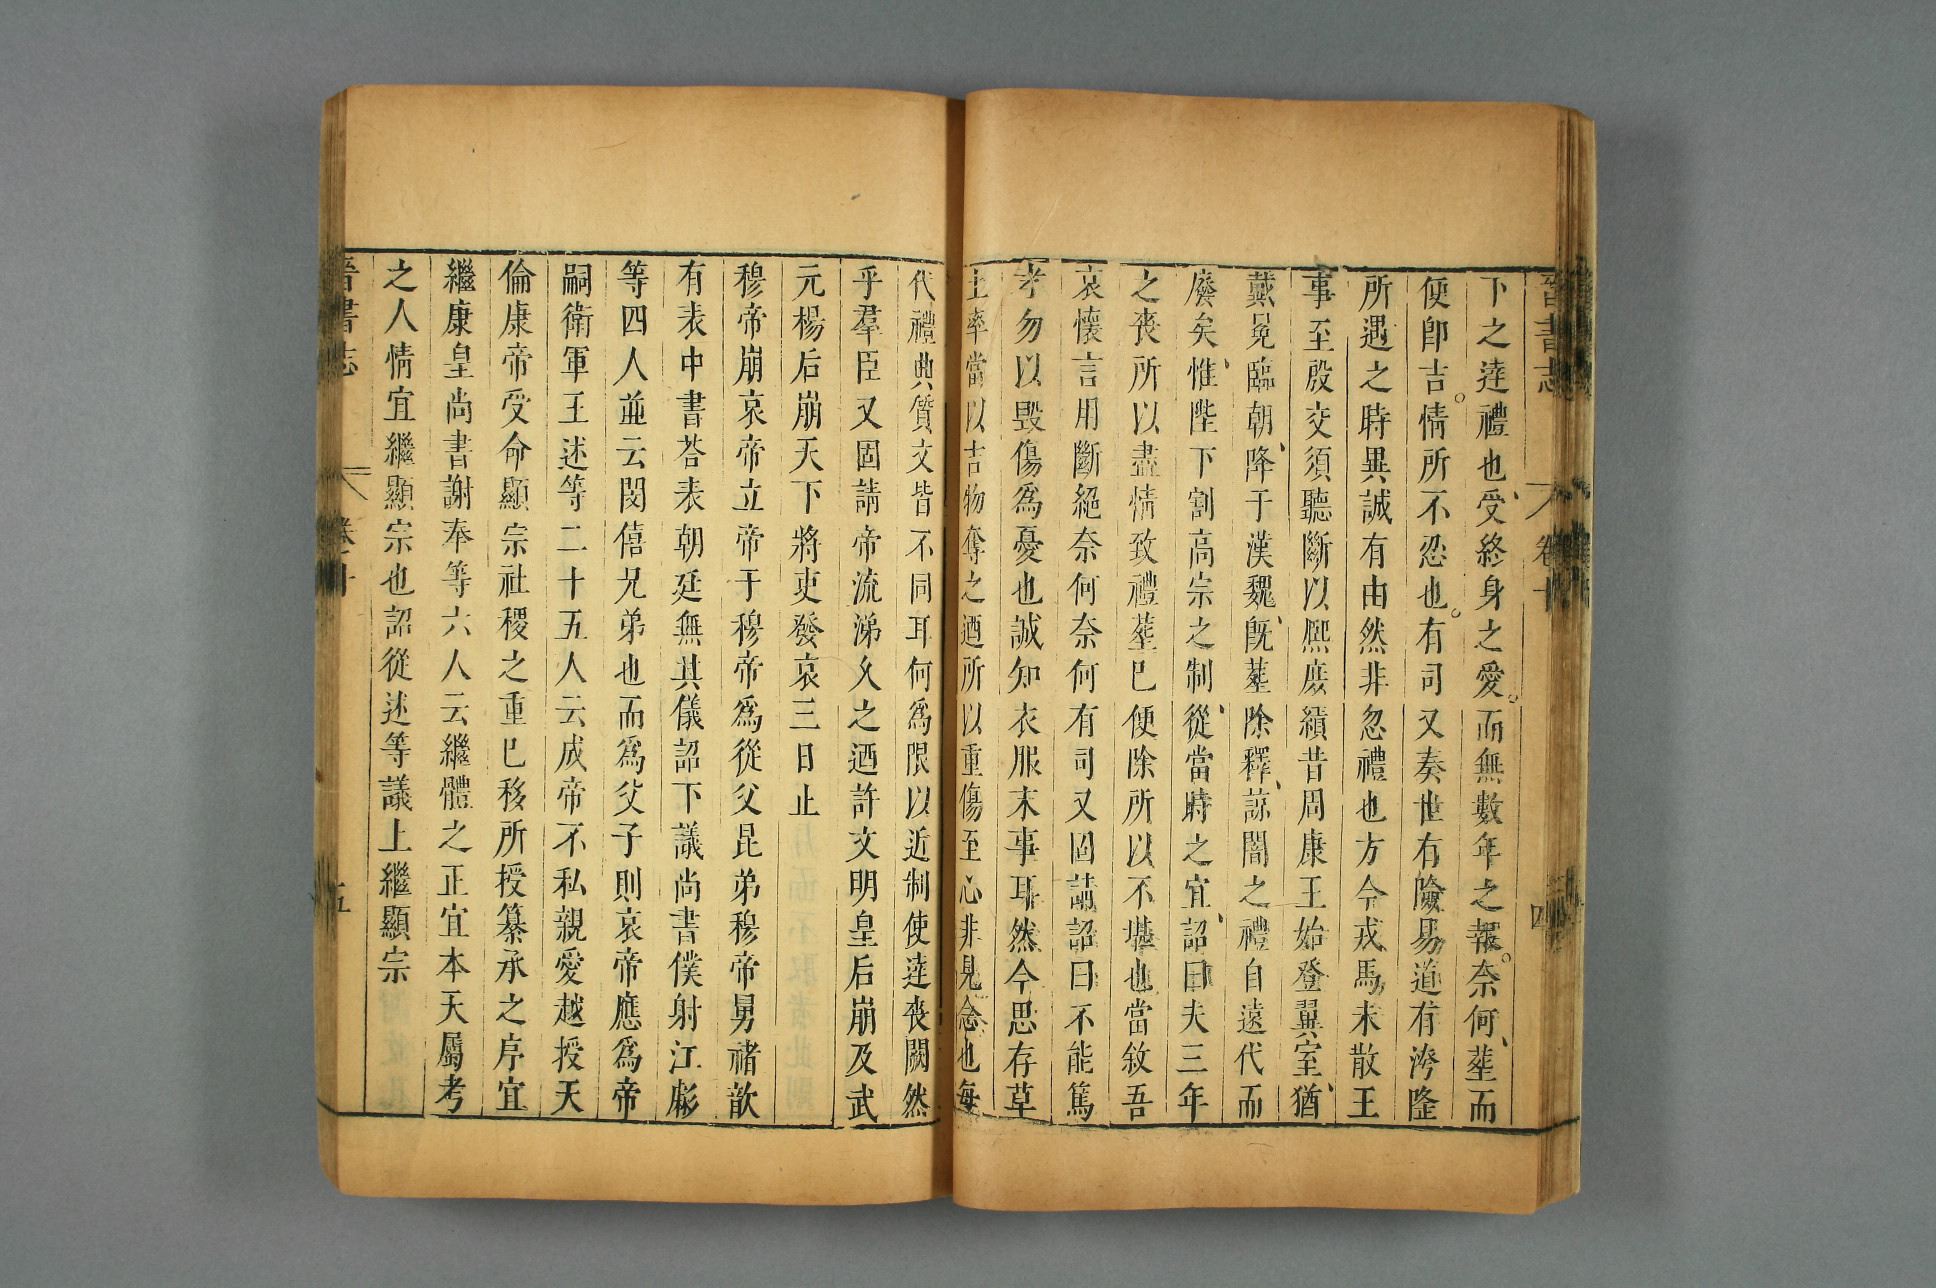 晉書志 卷十 四
下之達禮也受終身之愛而無數年之報奈何塟而
便卽吉情所不忍也有司又奏世有險易道有洿隆
所遇之時異誠有由然非忽禮也方今戎馬未散王
事至殷交須聽斷以熈庶績昔周康王始登翼室猶
戴冕臨朝降于漢魏旣塟除釋諒闇之禮自遠代而
廢矣惟陛下割高宗之制從當時之宜詔曰夫三年
之喪所以盡情致禮塟已便除所以不堪也當敘吾
哀懷言用斷絕奈何奈何有司又固請詔曰不能篤
孝勿以毀傷爲憂也誠知衣服末事耳然今思存草
土率當以吉物奪之迺所以重傷至心非見念也每
代禮典質文皆不同耳何爲限以近制使達喪闕然
乎羣臣又固請帝流涕久之迺許文明皇后崩及武
元楊后崩天下將吏發哀三日止
穆帝崩哀帝立帝于穆帝爲從父昆弟穆帝舅禇歆
有表中書荅表朝廷無其儀詔下議尚書僕射江虨
等四人並云閔僖兄弟也而爲父子則哀帝應爲帝
嗣衛軍王述等二十五人云成帝不私親愛越授天
倫康帝受命顯宗社稷之重已移所授纂承之序宜
繼康皇尚書謝奉等六人云繼體之正宜本天屬考
之人情宜繼顯宗也詔從述等議上繼顯宗
晉書志 卷十 五